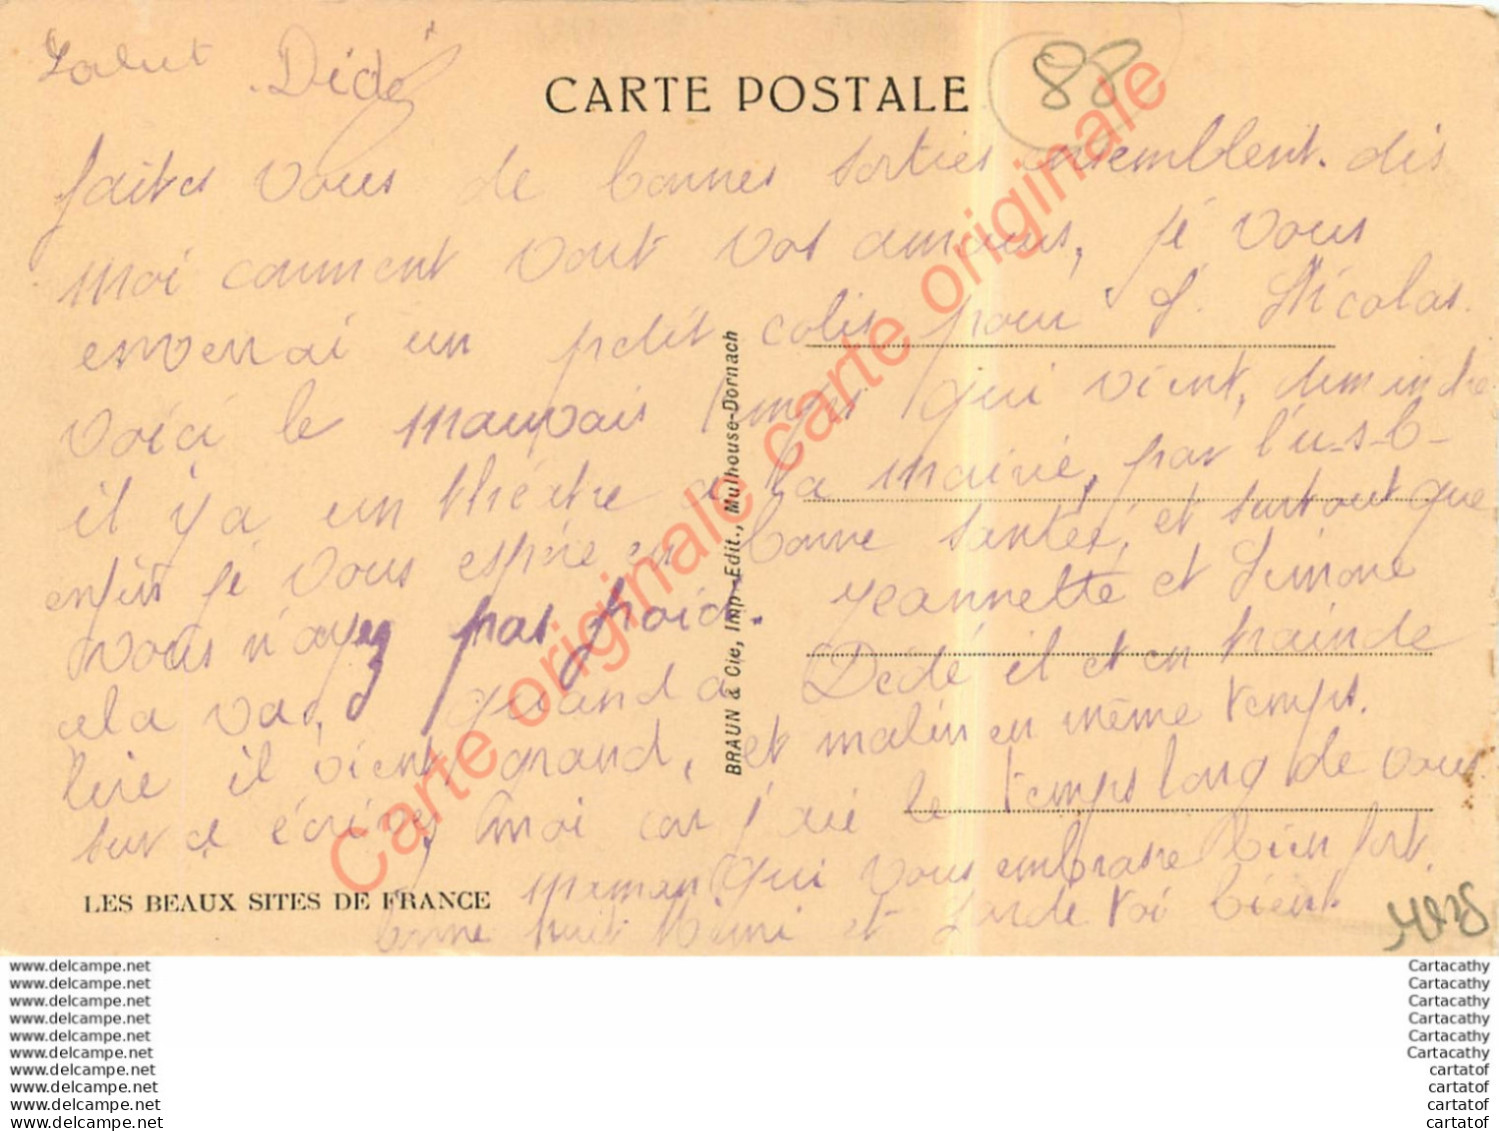 Salut Dédé
CARTE POSTALE
88
faites vous de bonnes sorties ensemblent. dis
moi comment vont vos amours, je vous
enverrai un petit colis pour S. Nicolas.
voici le mauvais temps qui vient, dimendre
il y a un théâtre a la mairie, par l'u-s-b-
enfin je vous espère en bonne santée, et surtout que
vous n'ayez pas froid. Jeannette et Simone
cela va, quand a Dédé il et en trainde
lire il vient grand, et malin en même temps.
sur ce écrivez moi car j'aie le temps long de vous
maman qui vous embrasse bien fort.
bonne nuit et garde toi bien
BRAUN & Cie, Imp.-Edit., Mulhouse-Dornach
LES BEAUX SITES DE FRANCE
Carte originale carte originale
www.delcampe.net
www.delcampe.net
www.delcampe.net
www.delcampe.net
www.delcampe.net
www.delcampe.net
www.delcampe.net
www.delcampe.net
www.delcampe.net
www.delcampe.net
Cartacathy
Cartacathy
Cartacathy
Cartacathy
Cartacathy
Cartacathy
cartatof
cartatof
cartatof
cartatof